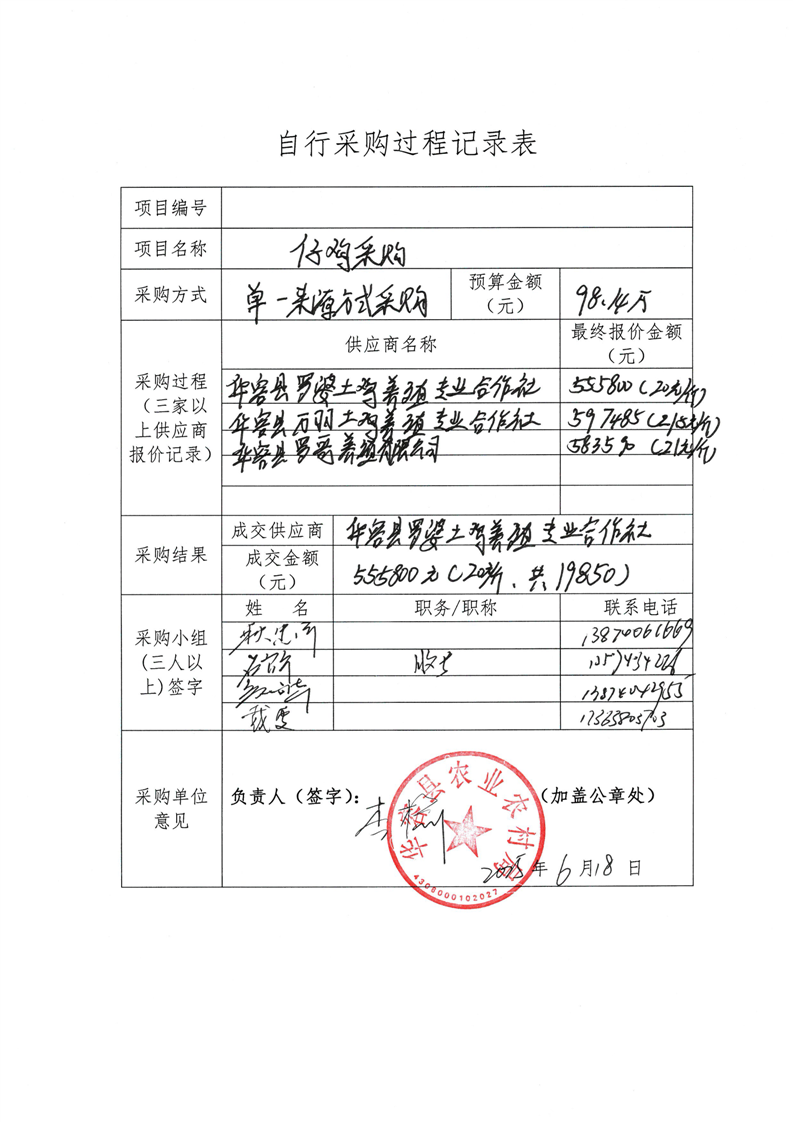 自行采购过程记录表
项目编号
项目名称 仔鸡采购
采购方式 单一来源方式采购 预算金额（元） 98.14万
采购过程（三家以上供应商报价记录） 供应商名称 最终报价金额（元）
华容县罗婆土鸡养殖专业合作社 555800（20元/斤）
华容县万羽土鸡养殖专业合作社 597485（21.5元/斤）
华容县罗哥养殖有限公司 583590（21元/斤）
采购结果 成交供应商 华容县罗婆土鸡养殖专业合作社
成交金额（元） 555800元（20元/斤、共19850）
采购小组（三人以上）签字 姓 名 职务/职称 联系电话
13874042955
17365805703
采购单位意见 负责人（签字）： （加盖公章处）
华容县农业农村局
2025年6月18日
4306000102027